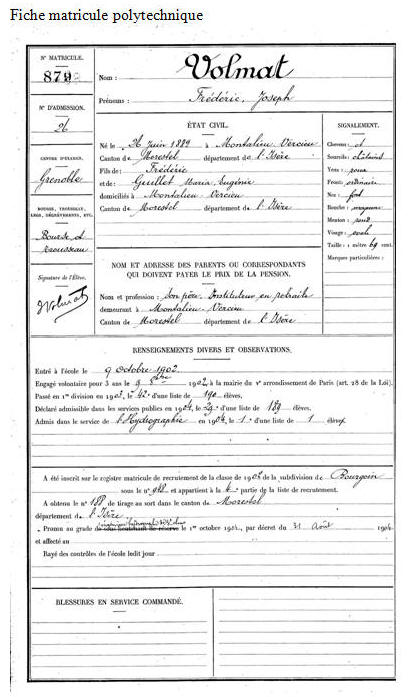 Fiche matricule polytechnique
N° MATRICULE.
879
N° D'ADMISSION.
26
CENTRE D'EXAMEN.
Grenoble
BOURSE, TROUSSEAU,
LEGS, DÉGRÈVEMENTS, ETC.
Bourse et
trousseau
Signature de l'Élève.
FVolmat
Nom : Volmat
Prénoms : Frédéric, Joseph
ÉTAT CIVIL.
Né le 26 Juin 1882 à Montalieu Vercieu
Canton de Morestel département de l'Isère
Fils de : Frédéric
et de : Guillet Maria Eugénie
domiciliés à Montalieu-Vercieu
Canton de Morestel département de l'Isère
NOM ET ADRESSE DES PARENTS OU CORRESPONDANTS
QUI DOIVENT PAYER LE PRIX DE LA PENSION.
Nom et profession : Son père, Instituteur en retraite
demeurant à Montalieu-Vercieu
Canton de Morestel département de l'Isère
SIGNALEMENT.
Cheveux et
Sourcils : châtains
Yeux : roux
Front : ordinaire
Nez : fort
Bouche : moyenne
Menton : rond
Visage : ovale
Taille : 1 mètre 69 cent.
Marques particulières :
RENSEIGNEMENTS DIVERS ET OBSERVATIONS.
Entré à l'école le 9 octobre 1902
Engagé volontaire pour 3 ans le 9 8bre 1902 à la mairie du Ve arrondissement de Paris (art. 28 de la Loi).
Passé en 1re division en 1903, le 42e d'une liste de 190 élèves.
Déclaré admissible dans les services publics en 1904, le 29e d'une liste de 189 élèves.
Admis dans le service de l'Hydrographie en 1904, le 1er d'une liste de 1 élève
A été inscrit sur le registre matricule de recrutement de la classe de 1902 de la subdivision de Bourgoin
sous le n° et appartient à la partie de la liste de recrutement.
A obtenu le n° 188 de tirage au sort dans le canton de Morestel
département de l'Isère
Promu au grade de sous-lieutenant de réserve le 1er octobre 1904, par décret du 31 Août 1904
et affecté au
Rayé des contrôles de l'école ledit jour
BLESSURES EN SERVICE COMMANDÉ.